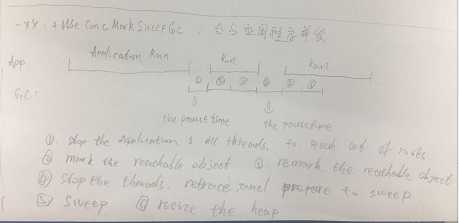 -XX:+Use Conc Mark Sweep Gc, 它与应用程序并发
Application Run Run Run
App
① ② ③ ④ ⑤ ⑥
GC:
the pause time the pause time
①. stop the Application's all threads, to reach set of roots
② mark the reachable object ③ remark the reachable object
④ stop the threads, retrace and prepare to sweep
⑤ sweep ⑥ resize the heap